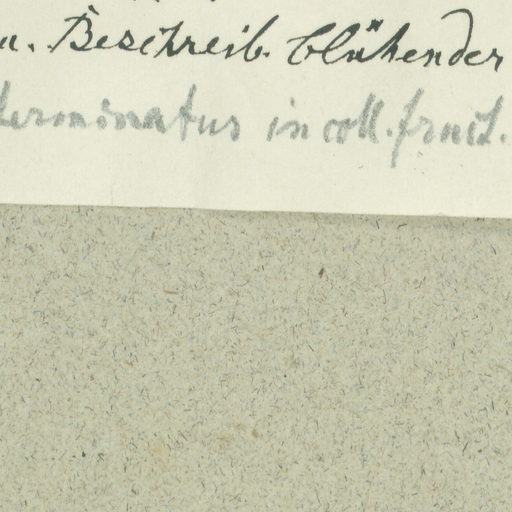 u. Beschreib. blühender
terminatus in coll. fruct.